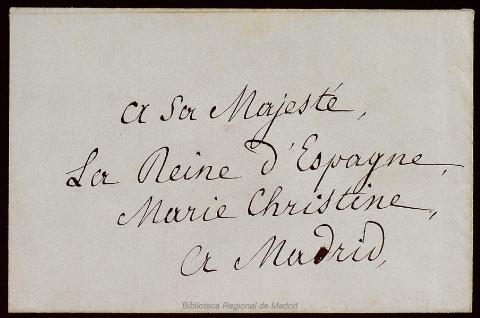 a Sa Majesté,
La Reine d'Espagne,
Marie Christine,
a Madrid,
Biblioteca Regional de Madrid